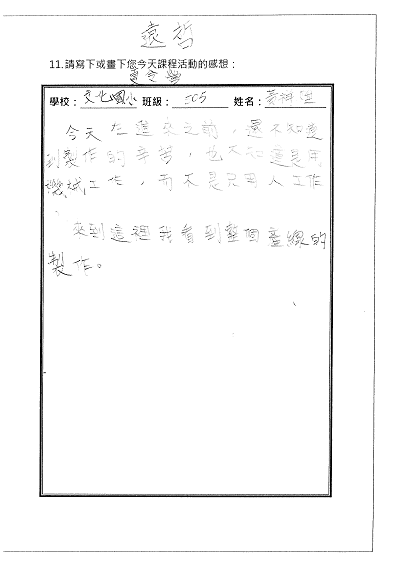 遠哲
11.請寫下或畫下您今天課程活動的感想：
夏令營
學校：文化國小 班級：505 姓名：
今天在進來之前，還不知道
到製作的辛苦，也不知道是用
機械工作，而不是只用人工作
。
來到這裡我看到整個產線的
製作。